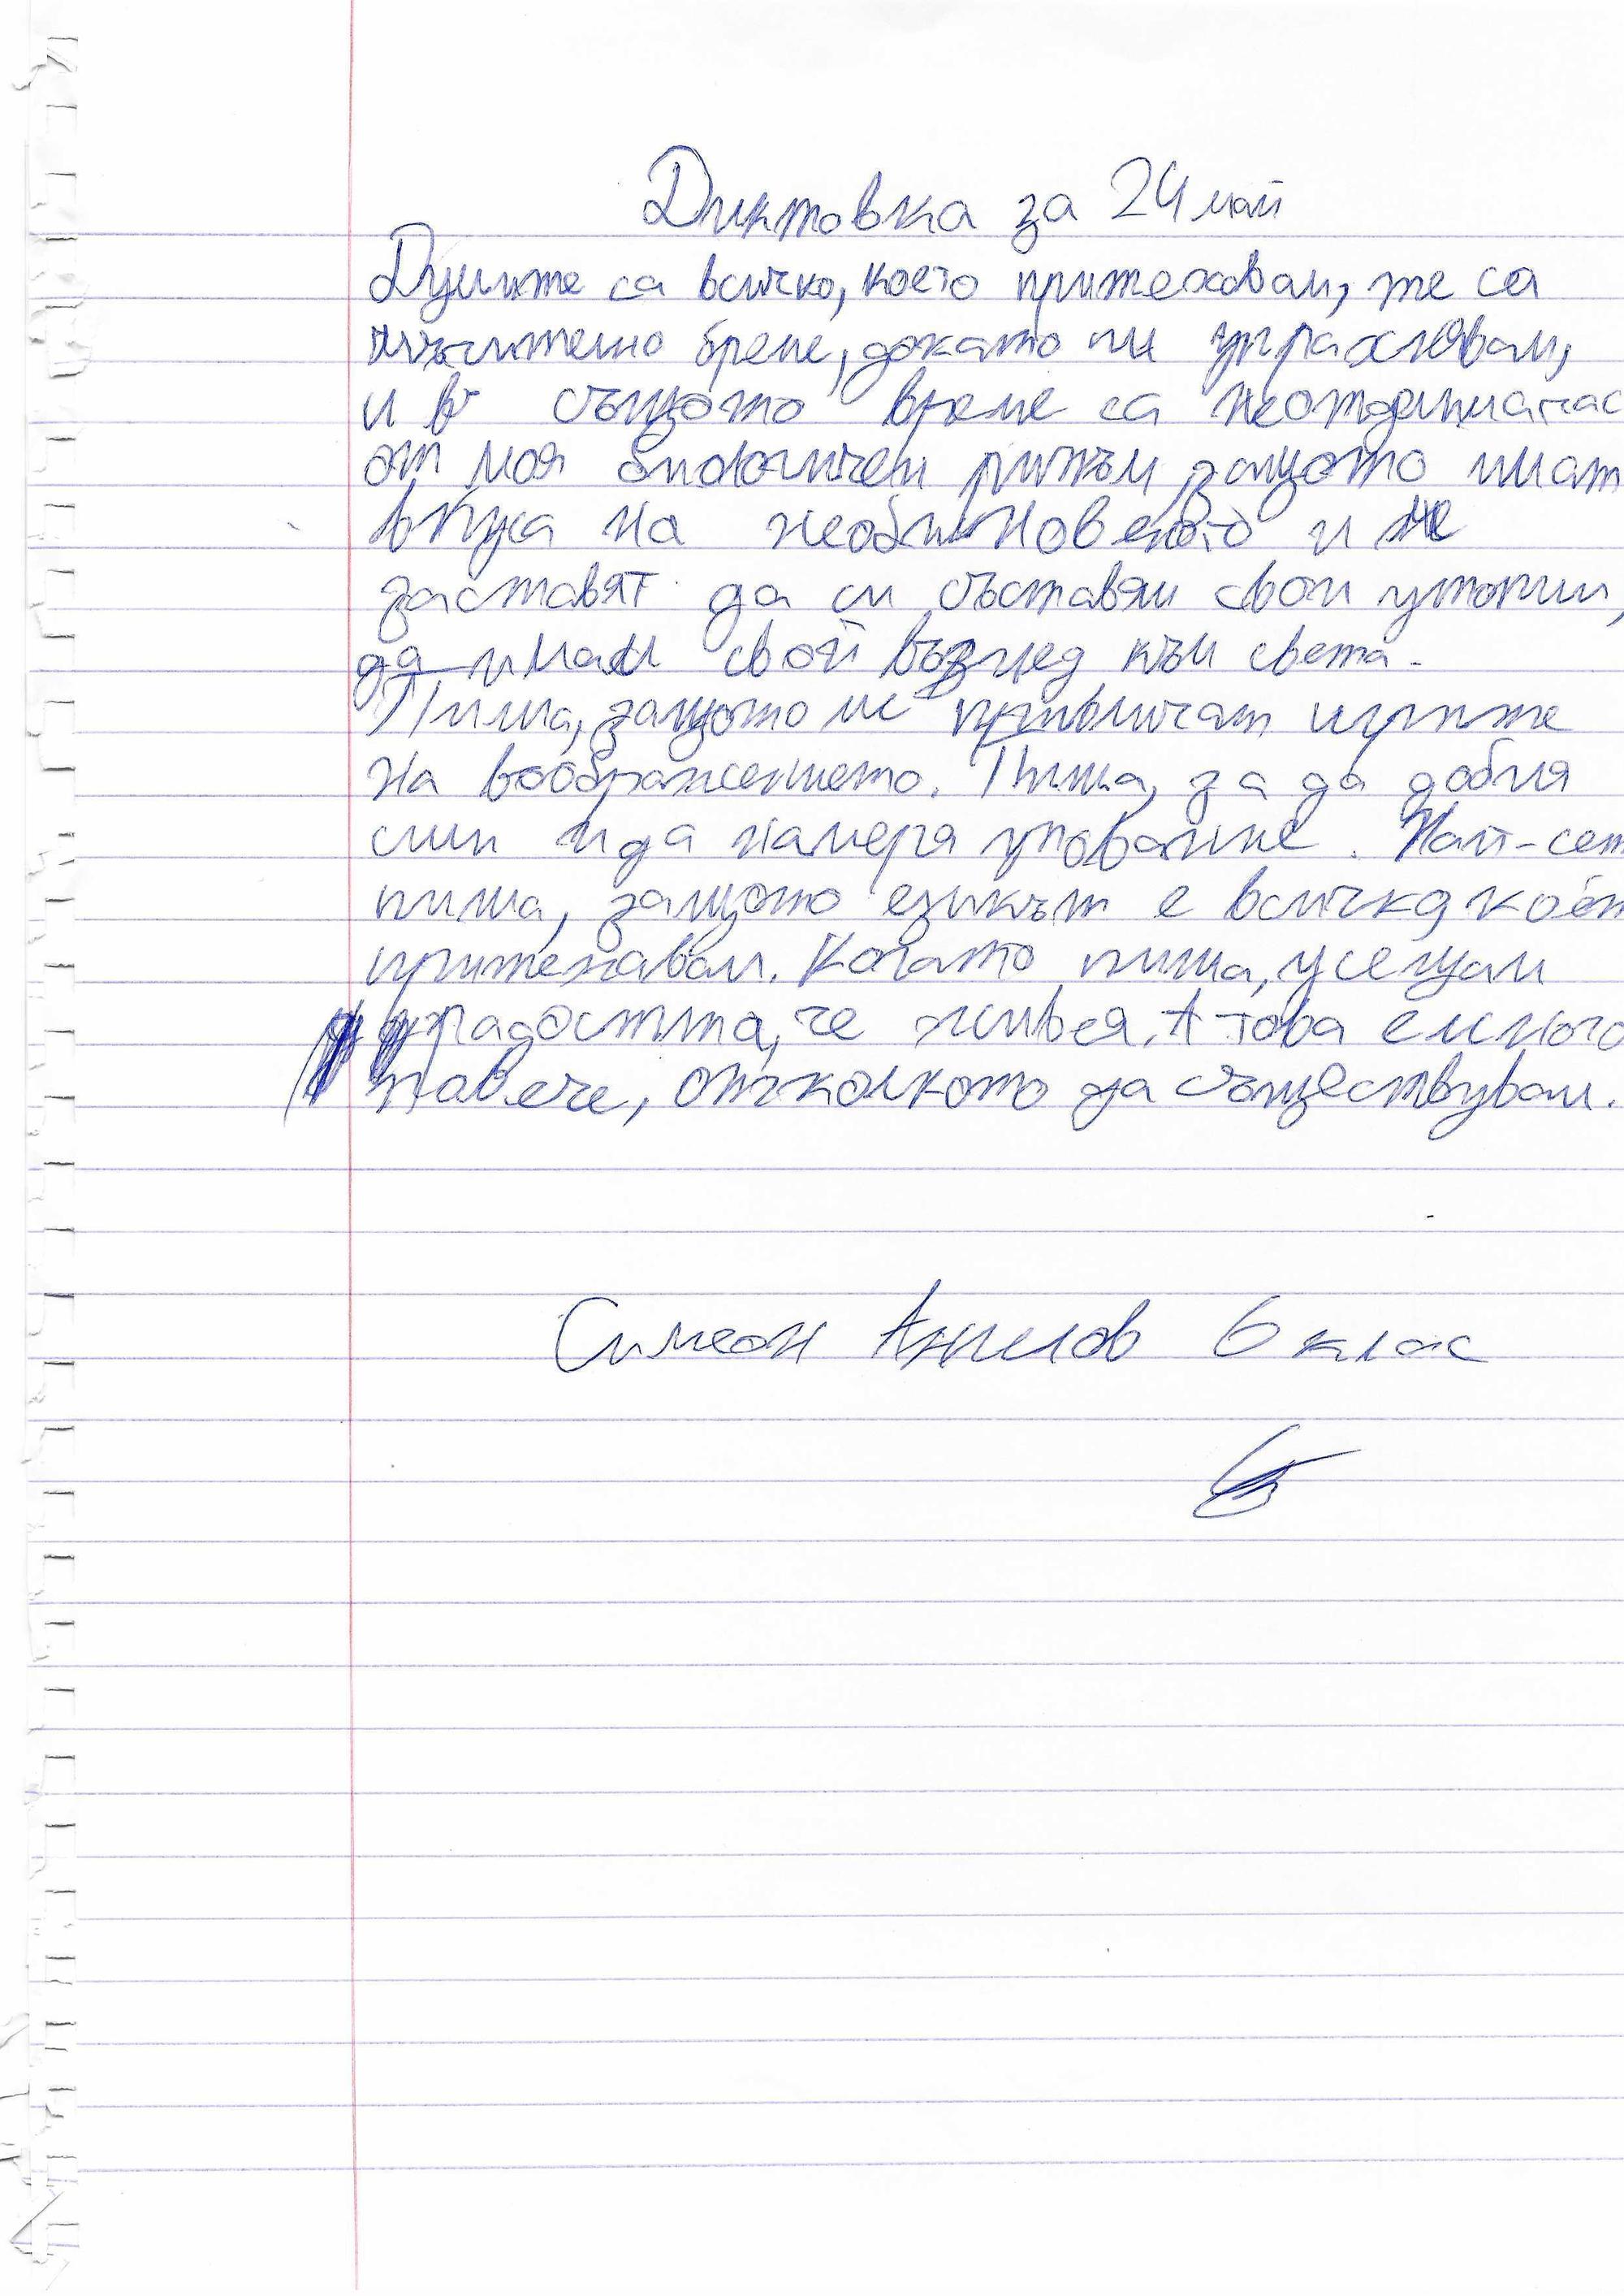 Диктовка за 24 май
Думите са всичко, което притежавам, те са
мъчително бреме, докато ги упражнявам,
и в същото време са неотделима час
от моя биологичен ритъм, защото имат
вкуса на необикновеното и ме
заставят да си съставям свои утопии,
да имам свой възглед към света.
Пиша, защото ме привличат игрите
на въображението. Пиша, за да добия
сили и да намеря упование. Най-сет
пиша, защото езикът е всичко, коет
притежавам. Когато пиша, усещам
радостта, че живея. А това е много
повече, отколкото да съществувам.
Симеон 6 клас